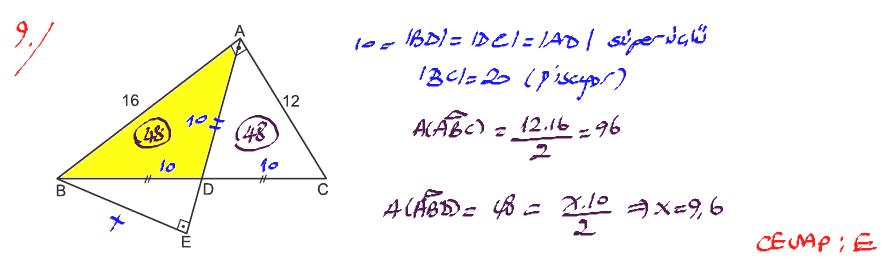 9.)
A
16
12
10
48
48
10
10
B
D
C
x
E
10 = |BD| = |DC| = |AD| süper üçlü
|BC| = 20 (Pisagor)
A(ABC) = 12.16 / 2 = 96
A(ABD) = 48 = x.10 / 2 ⇒ x = 9,6
CEVAP : E